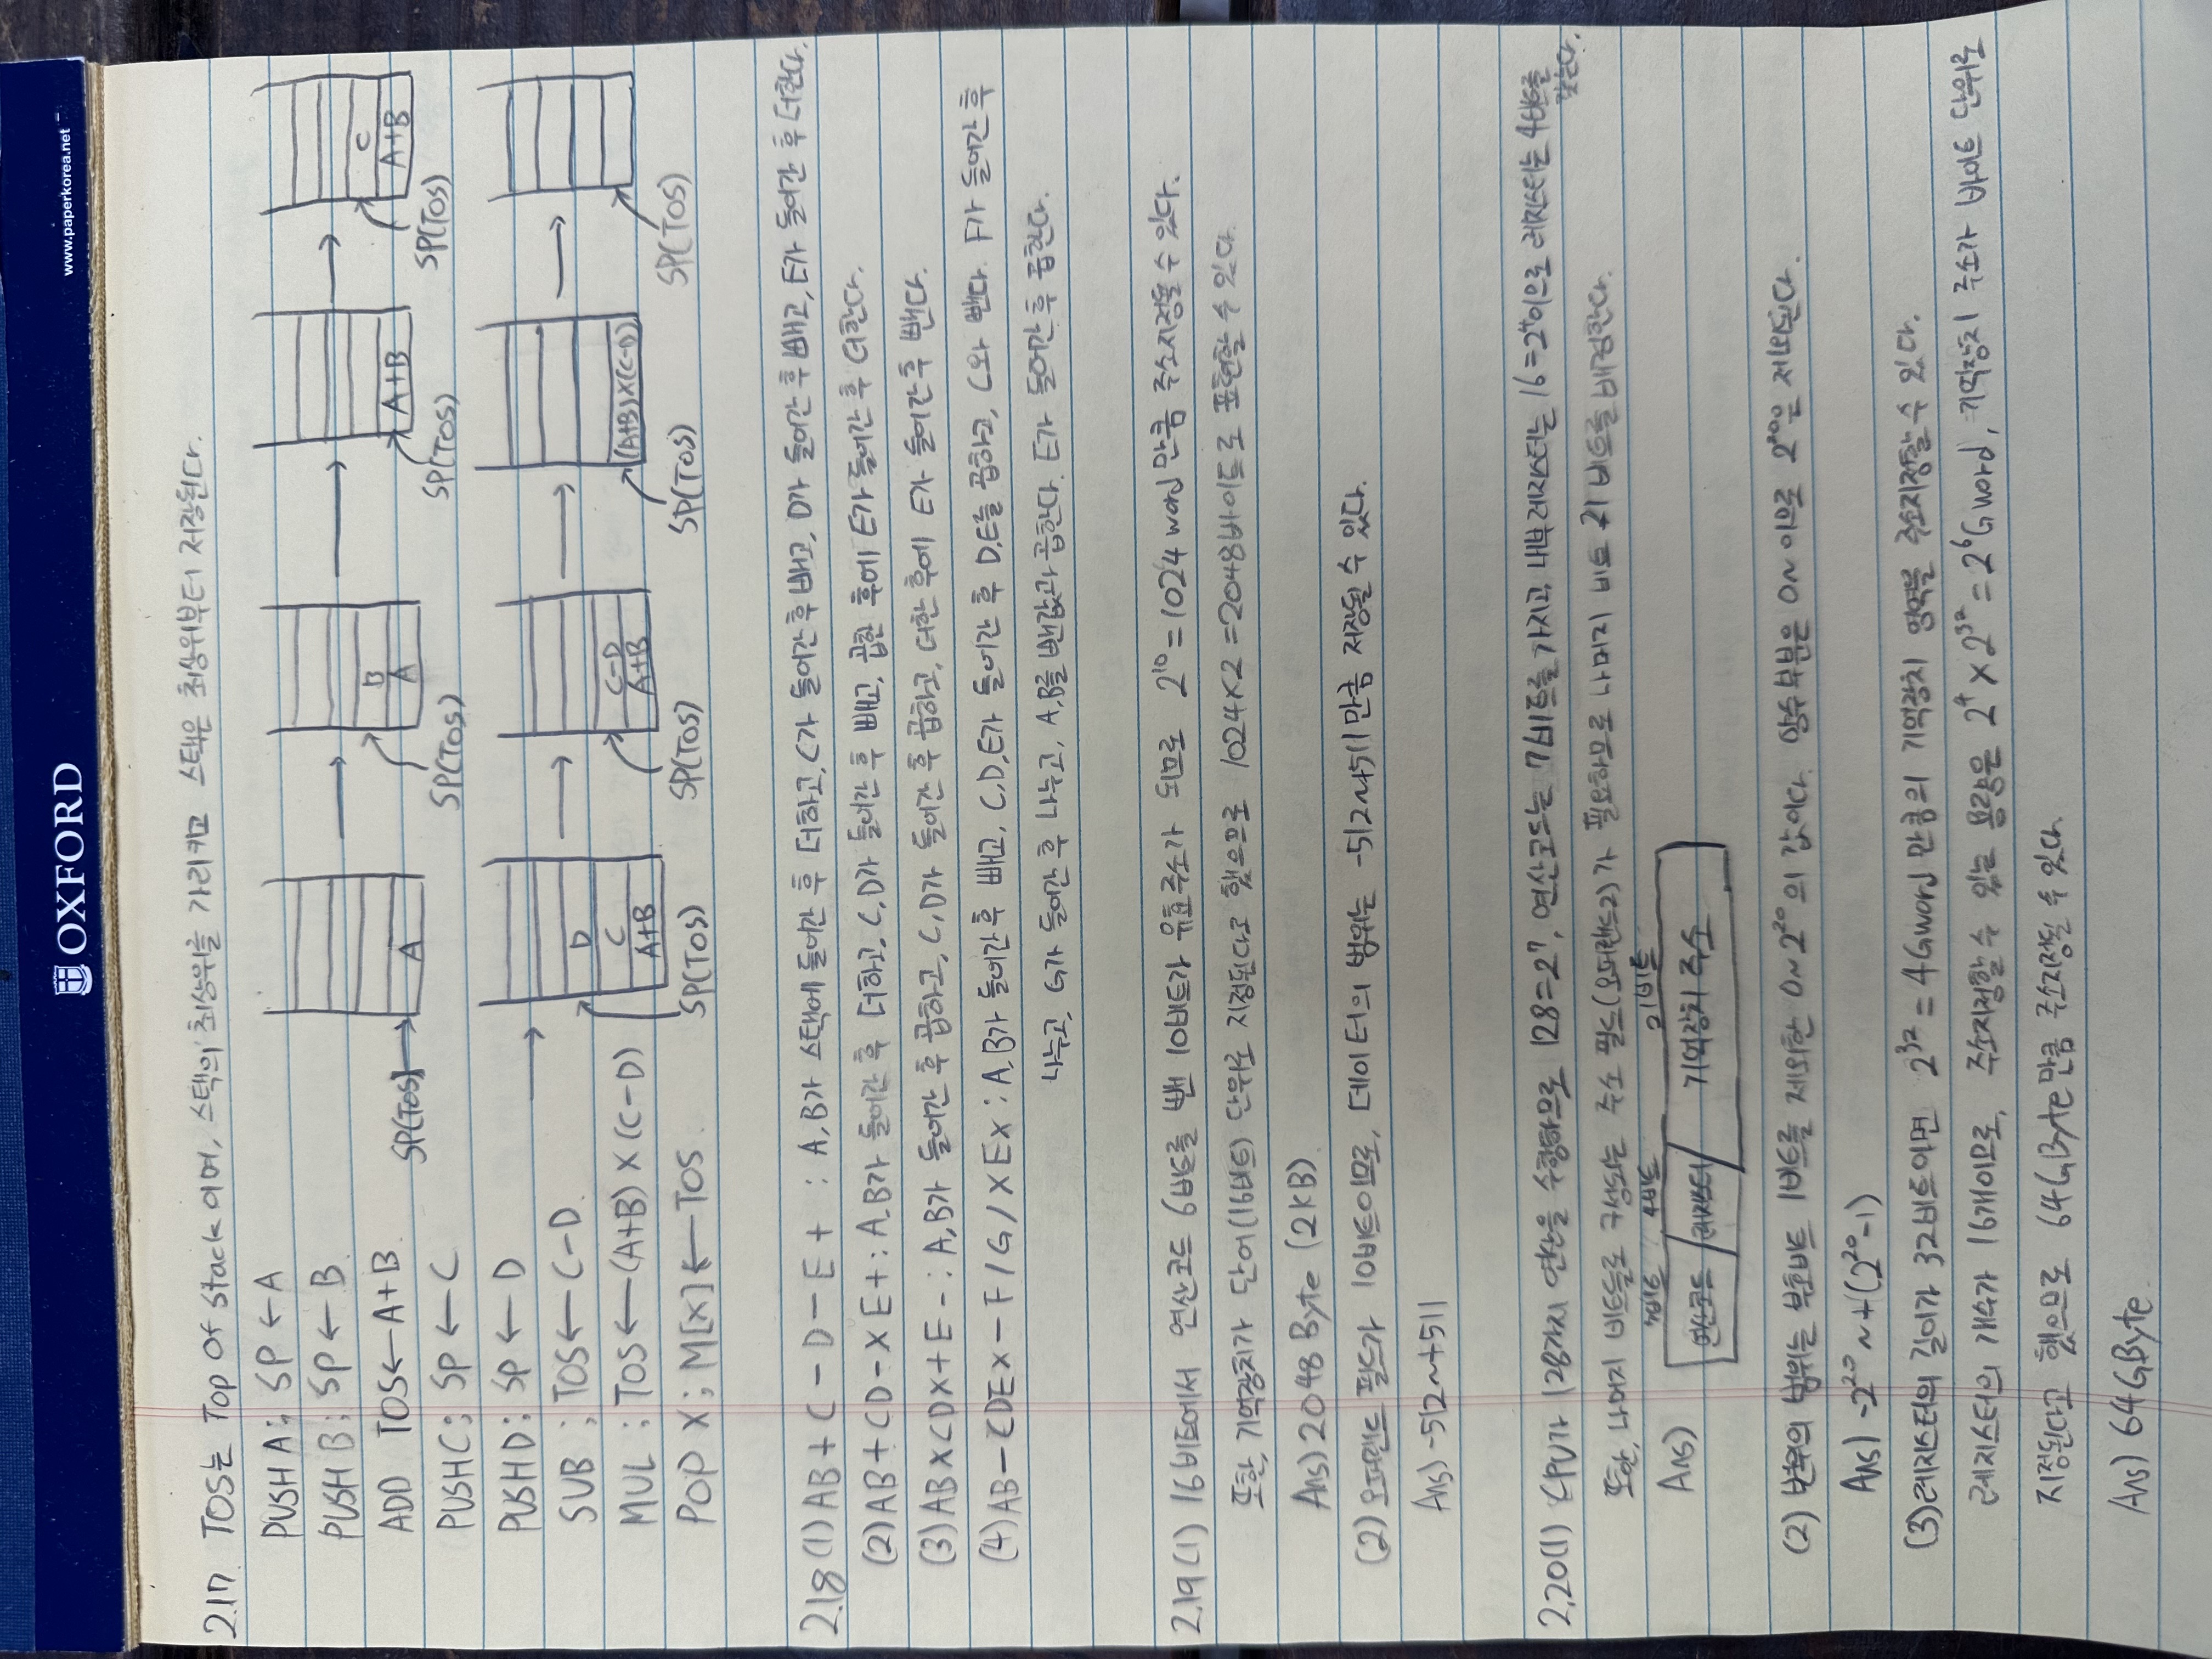 OXFORD
www.paperkorea.net
2.17. TOS는 Top Of Stack 이며, 스택의 최상위를 가리키고 스택은 최상위부터 저장된다.
PUSH A; SP ← A
PUSH B; SP ← B
ADD TOS ← A+B
PUSH C; SP ← C
PUSH D; SP ← D
SUB ; TOS ← C-D
MUL ; TOS ← (A+B) X (C-D)
POP X ; M[X] ← TOS
SP(TOS) A
B
A
SP(TOS)
A+B
SP(TOS)
C
A+B
SP(TOS)
D
C
A+B
SP(TOS)
C-D
A+B
SP(TOS)
(A+B)X(C-D)
SP(TOS)
SP(TOS)
2.18 (1) AB + C - D - E + : A, B가 스택에 들어간 후 더하고, C가 들어간 후 빼고, D가 들어간 후 빼고, E가 들어간 후 더한다.
(2) AB + CD - X E + : A, B가 들어간 후 더하고, C, D가 들어간 후 빼고, 곱한 후에 E가 들어간 후 더한다.
(3) AB X CD X + E - : A, B가 들어간 후 곱하고, C, D가 들어간 후 곱하고, 더한 후에 E가 들어간 후 뺀다.
(4) AB - CDE X - F / G / X E X : A, B가 들어간 후 빼고, C, D, E가 들어간 후 D, E를 곱하고, C와 뺀다. F가 들어간 후
나누고, G가 들어간 후 나누고, A, B를 뺀값과 곱한다. E가 들어간 후 곱한다.
2.19 (1) 16비트에서 연산코드 6비트를 뺀 10비트가 유효주소가 되므로 2¹⁰ = 1024 word 만큼 주소지정될 수 있다.
또한, 기억장치가 단어(16비트) 단위로 지정된다고 했으므로 1024 X 2 = 2048바이트로 표현할 수 있다.
Ans) 2048 Byte (2KB)
(2) 오퍼랜드 필드가 10비트이므로, 데이터의 범위는 -512~+511 만큼 저장될 수 있다.
Ans) -512~+511
2.20 (1) CPU가 128가지 연산을 수행하므로 128=2⁷, 연산코드는 7비트를 가지고 내부 레지스터는 16=2⁴이므로 레지스터는 4비트를
갖는다.
또한, 나머지 비트들로 구성되는 주소 필드(오퍼랜드2)가 필요하므로 나머지 비트 21비트를 배정한다.
7비트 4비트 21비트
Ans) 연산코드 레지스터 기억장치 주소
(2) 변위의 범위는 부호비트 1비트를 제외한 0~2²⁰의 값이다. 양수 부분은 0~ 이므로 2²⁰은 제외된다.
Ans) -2²⁰ ~ +(2²⁰-1)
(3) 레지스터의 길이가 32비트이면 2³² = 4Gword 만큼의 기억장치 영역을 주소지정할 수 있다.
레지스터의 개수가 16개이므로, 주소지정할 수 있는 용량은 2⁴ X 2³² = 2⁶ Gword, 기억장치 주소가 바이트 단위로
지정된다고 했으므로 64GByte만큼 주소지정될 수 있다.
Ans) 64GByte.